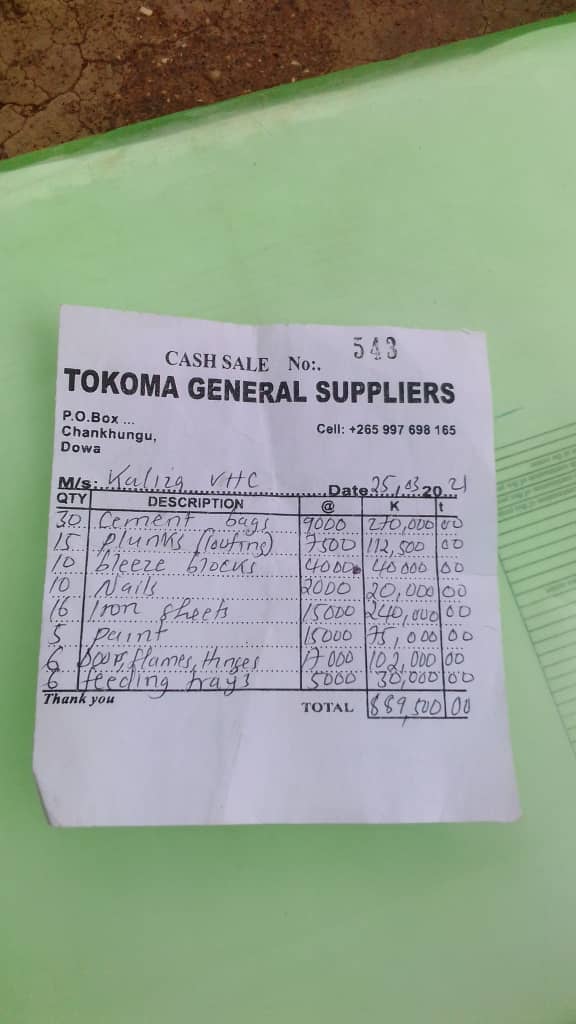 543
CASH SALE No:.
TOKOMA GENERAL SUPPLIERS
P.O.Box ...
Chankhungu,
Dowa
Cell: +265 997 698 165
M/s: Kuliza VHC Date 25,03 20 21
QTY DESCRIPTION @ K t
30 Cement bags 9000 270,000 00
15 plunks (loufing) 7500 112,500 00
10 bleeze blocks 4000 40000 00
10 Nails 2000 20,000 00
16 Iron sheets 15000 240,000 00
5 paint 15000 75,000 00
6 Door, flames, Hinges 17000 102,000 00
6 feeding trays 5000 30,000 00
Thank you
TOTAL 889,500 00